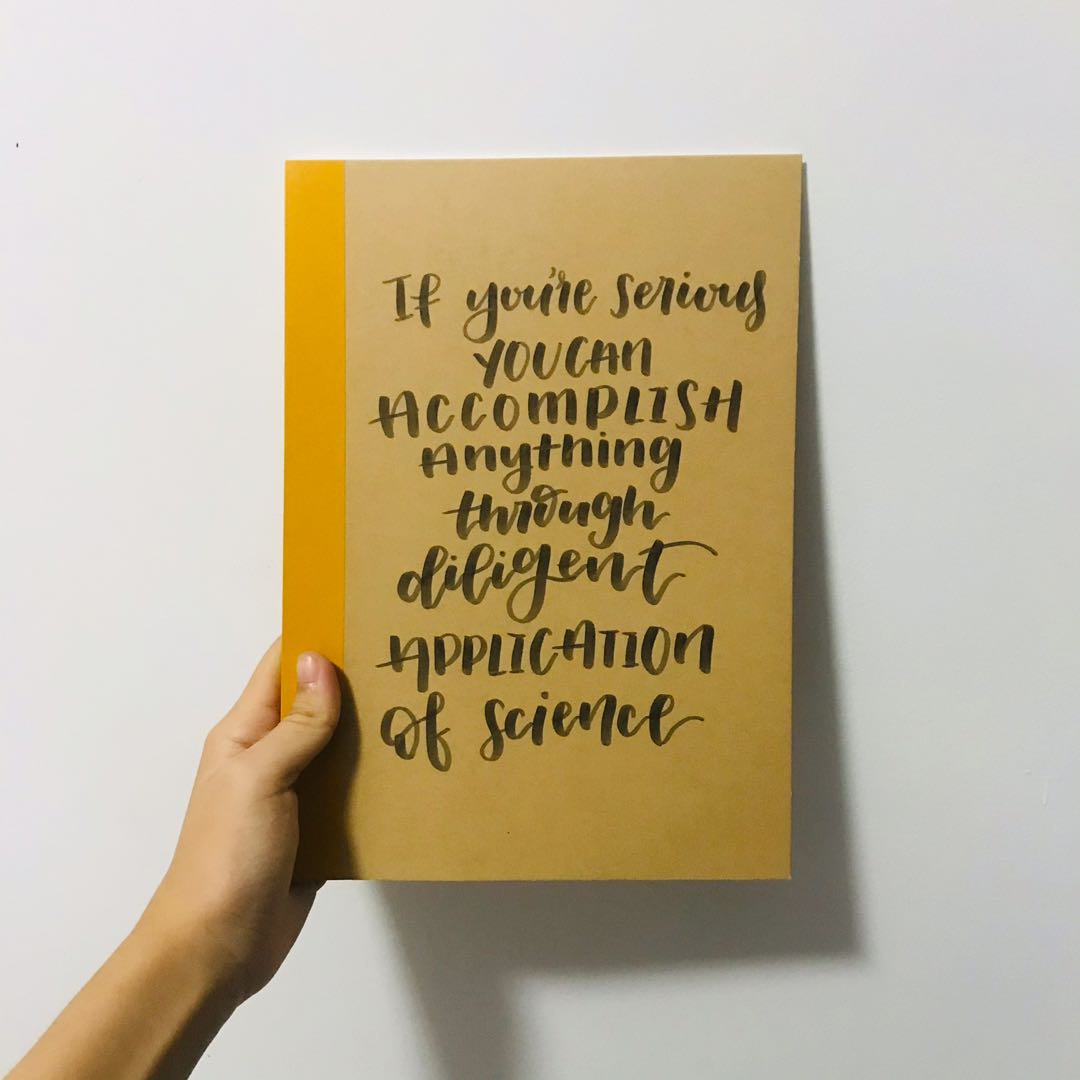 If you're serious
YOU CAN
ACCOMPLISH
Anything
through
diligent
APPLICATION
Of science